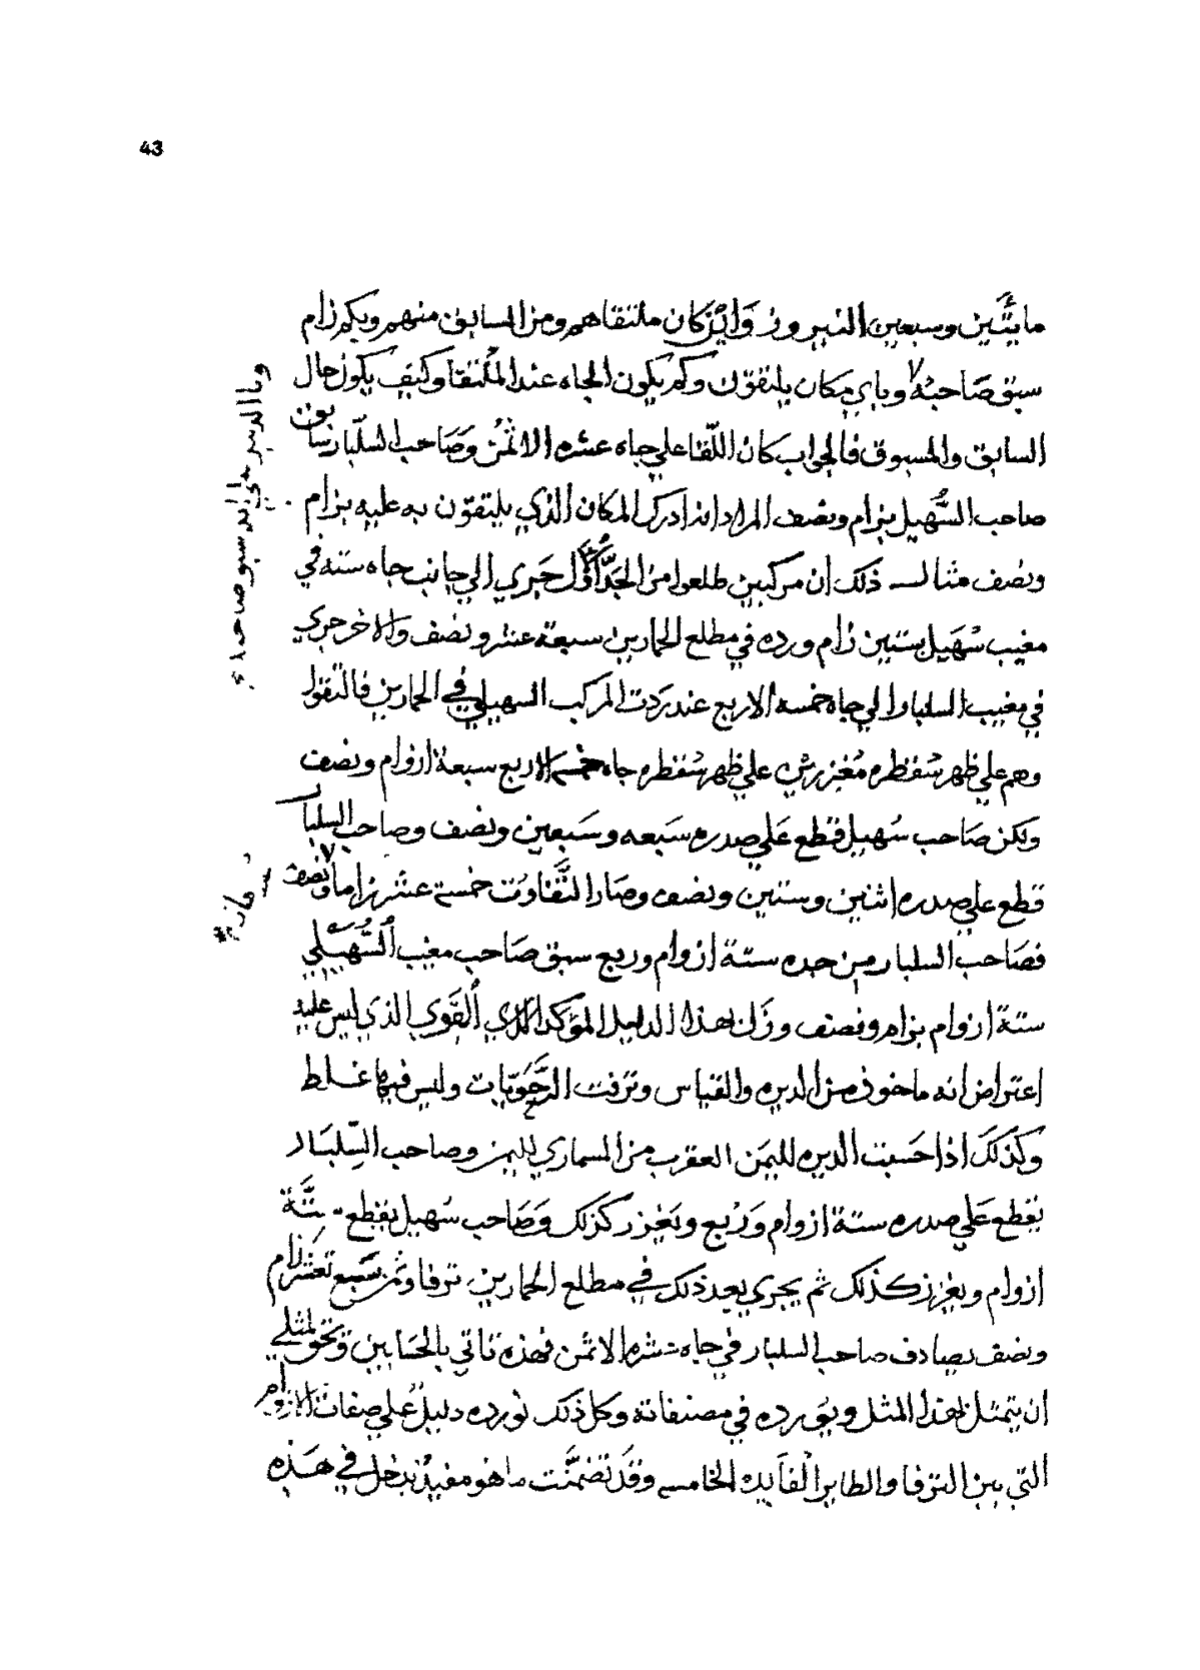 43
مايتَّين وسبعين النيروز وَايْن كان ملتقاهم ومن السابق منهم وبكم زام
سبق صَاحبُه وباي مكان يلتقون وكم يكون الجاه عند المُلتقا وكيف يكون حال
السابق والمسبوق فالجواب كان اللّقا علي جاه عشره الا ثمُن وصَاحب السلّبار سابق
صاحب السُّهيل بزام ونصف المراد انه ادرك المكان الذي يلتقون به عليه بزام
ونصف مثال ذلك ان مركبين طلعوا من الجدّ اوَّل جَري الي جانب جاه سته في
مغيب سُهَيل بستين زام ورده في مطلع الحمارين سبعة عشر ونصف والاخر جري
في مغيب السلبار الي جاه خمسه الا ربع عند رَدت المركب السهيلي في الحمارين فالتقوا
وهم علي ظهر سُقطره مُغزرين علي ظهر سُقطره جاه خمسه الا ربع سبعة ازوام ونصف
ولكن صَاحب سُهيل قطع عَلي صدره سَبعه وسَبعين ونصف وصاحب السلبار
قطع علي صدره اثنين وستين ونصف وصار التَّفاوُت خمسة عشر زاما ونصف
فصَاحب السلبار من حده ستة ازوام وربع سبق صَاحب مغيب السُّهَيْلي
ستة ازوام بزام ونصف وزال بهذا الدليل المؤكد القَوي الذي ليس عليه
اعتراض انه ماخوذ من الديره والقياس وترفت الرَّحَويّات وليس فيها غلط
وكذلكَ اذا حَسبت الديره لليمَن العقرب من السماري لليمن وصاحب السِّلبَار
يقطع عَلي صدره ستة ازوام وَربْع ويَغزر كذلك وَصَاحب سُهيل يقطع ستَّة
ازوام ويغزر كذلك ثم يجري بعد ذلك في مطلع الحمارين ترفا وثمن سَبع تعشر زام
ونصف يصادف صاحب السلبار في جاه عشره الا ثمن فهذه تاتي بالحسَابين وَيحق لمثلي
ان يتمثل بهذا المثل ويورده في مصنفاته وكل ذلك نورده دليلٌ علي صفات الازوام
التي بين الترفا والطاير الفَايده الخامسه وقَد تضمَّنت ما هو مفيدٌ يدخل في هَذه